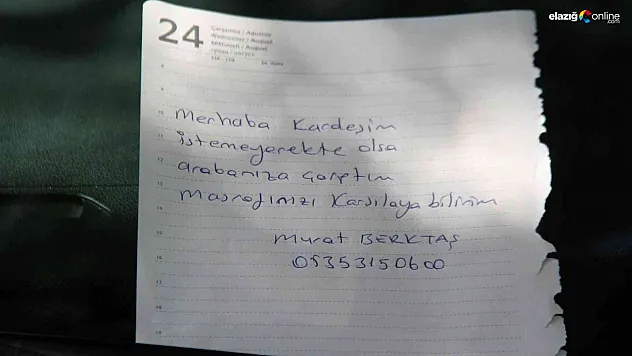 elazığonline.com
24
Çarşamba / Ağustos
Wednesday / August
Mittwoch / August
Merhaba Kardeşim
İstemeyerekte olsa
arabanıza çarptım
Masrafınızı Karşılaya bilirim
Murat BERKTAŞ
05353150600